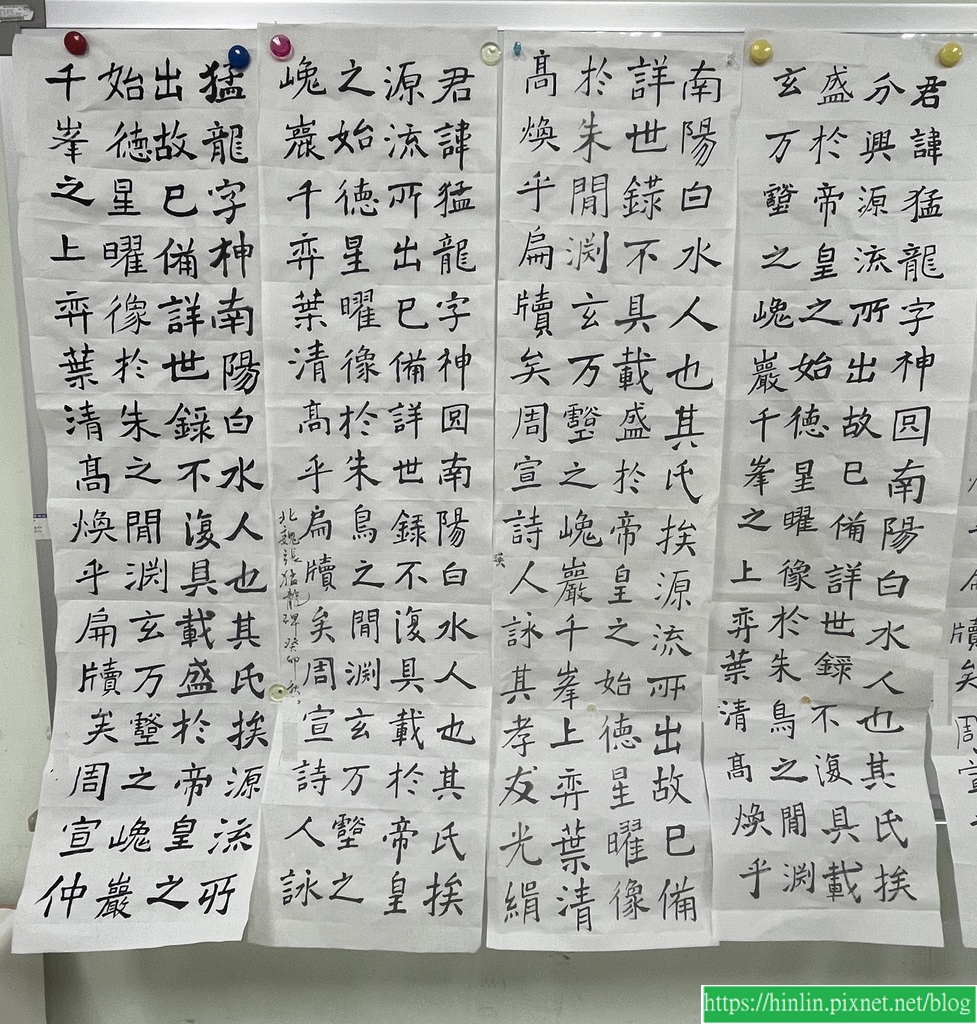 牘矣周宣
君諱猛龍字神囧南陽白水人也其氏挨
分興源流所出故已備詳世錄不復具載
盛於帝皇之始德星曜像於朱鳥之閒淵
玄万壑之巍巖千峯之上弈葉清高煥乎
南陽白水人也其氏挨源流所出故已備
詳世錄不具載盛於帝皇之始德星曜像
於朱閒淵玄万壑之巍巖千峯上弈葉清
高煥乎扁牘矣周宣詩人詠其孝友光絹
瑛
君諱猛龍字神囧南陽白水人也其氏挨
源流所出已備詳世錄不復具載於帝皇
之始德星曜像於朱鳥之閒淵玄万壑之
巍巖千弈葉清高乎扁牘矣周宣詩人詠
北魏張猛龍碑 癸卯 秋
猛龍字神南陽白水人也其氏挨源流所
出故已備詳世錄不復具載盛於帝皇之
始德星曜像於朱之閒淵玄万壑之巍巖
千峯之上弈葉清高煥乎扁牘矣周宣仲
https://hinlin.pixnet.net/blog